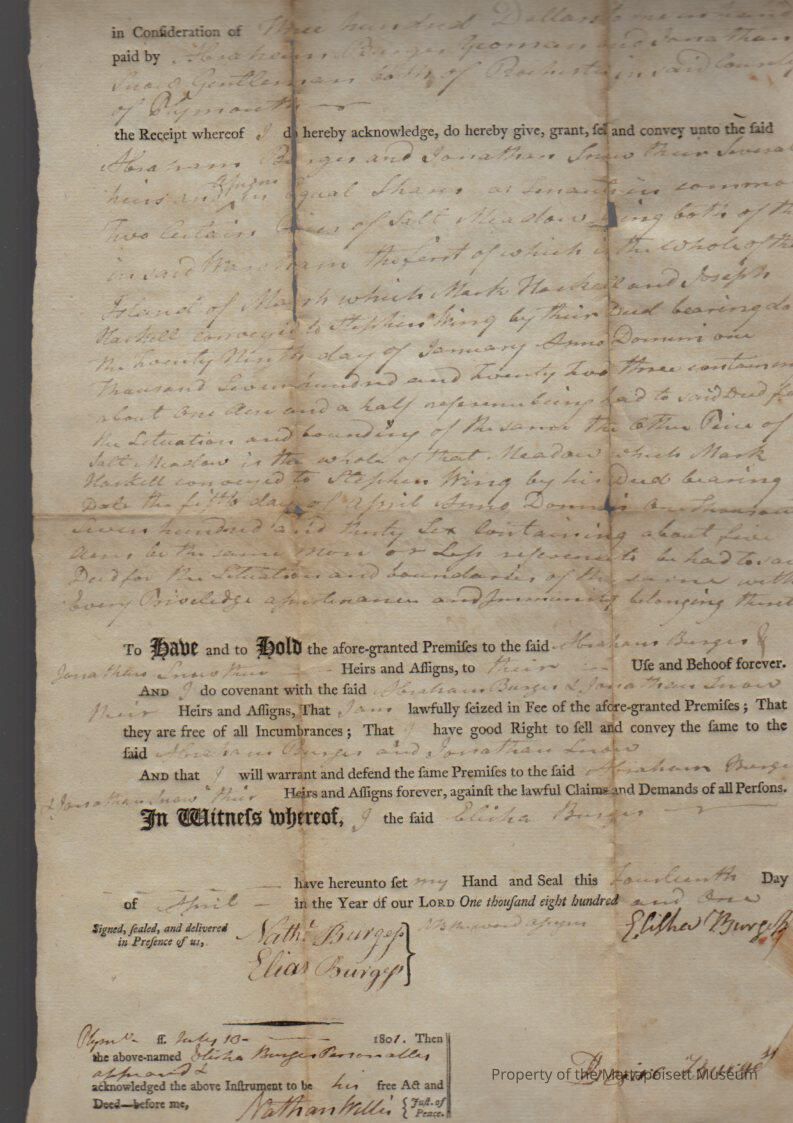 in Consideration of Three hundred Dollars to me in hand
paid by Abraham Burges Yeoman and Jonathan
Snow Gentleman both of Rochester in said County
of Plymouth
the Receipt whereof I do hereby acknowledge, do hereby give, grant, sell and convey unto the said
Abraham Burges and Jonathan Snow their Several
heirs and assigns in Equal Shares as tenants in common
Two Certain Pieces of Salt Meadow Lying both of them
in said Wareham the first of which is the whole of the
Island of Marsh which Mark Haskell and Joseph
Haskell conveyed to Stephen Wing by their Deed bearing date
the Twenty Ninth day of January Anno Domini one
Thousand Seven hundred and Twenty two three containing
about one Acre and a half reference being had to said Deed for
the Situation and bounding of the same the Other Piece of
Salt Meadow is the whole of that Meadow which Mark
Haskell conveyed to Stephen Wing by his Deed bearing
Date the fifth day of April Anno Domini One Thousand
Seven hundred and thirty Six Containing about five
Acres be the same more or Less reference to be had to said
Deed for the Situation and boundaries of the same with
Every Priviledge apurtenance and Immunity belonging
To Have and to Hold the afore-granted Premiſes to the ſaid Abraham Burges &
Jonathan Snow their Heirs and Aſſigns, to their Uſe and Behoof forever.
AND I do covenant with the ſaid Abraham Burges & Jonathan Snow
their Heirs and Aſſigns, That I am lawfully ſeized in Fee of the afore-granted Premiſes; That
they are free of all Incumbrances; That I have good Right to ſell and convey the ſame to the
ſaid Abraham Burges and Jonathan Snow
AND that I will warrant and defend the ſame Premiſes to the ſaid Abraham Burges
& Jonathan Snow their Heirs and Aſſigns forever, againſt the lawful Claims and Demands of all Perſons.
In Witneſs whereof, I the ſaid Elisha Burges
have hereunto ſet my Hand and Seal this fourteenth Day
of April in the Year of our LORD One thouſand eight hundred and One
Signed, ſealed, and delivered
in Preſence of us,
Nath. Burgess
Elias Burgess
Elisha Burgess
Plym ſſ. July 13 1801. Then
the above-named Elisha Burges Personally
appeared &
acknowledged the above Inſtrument to be his free Act and
Deed—before me,
Nathan Willis { Juſt. of Peace.
Property of the Mattapoisett Museum